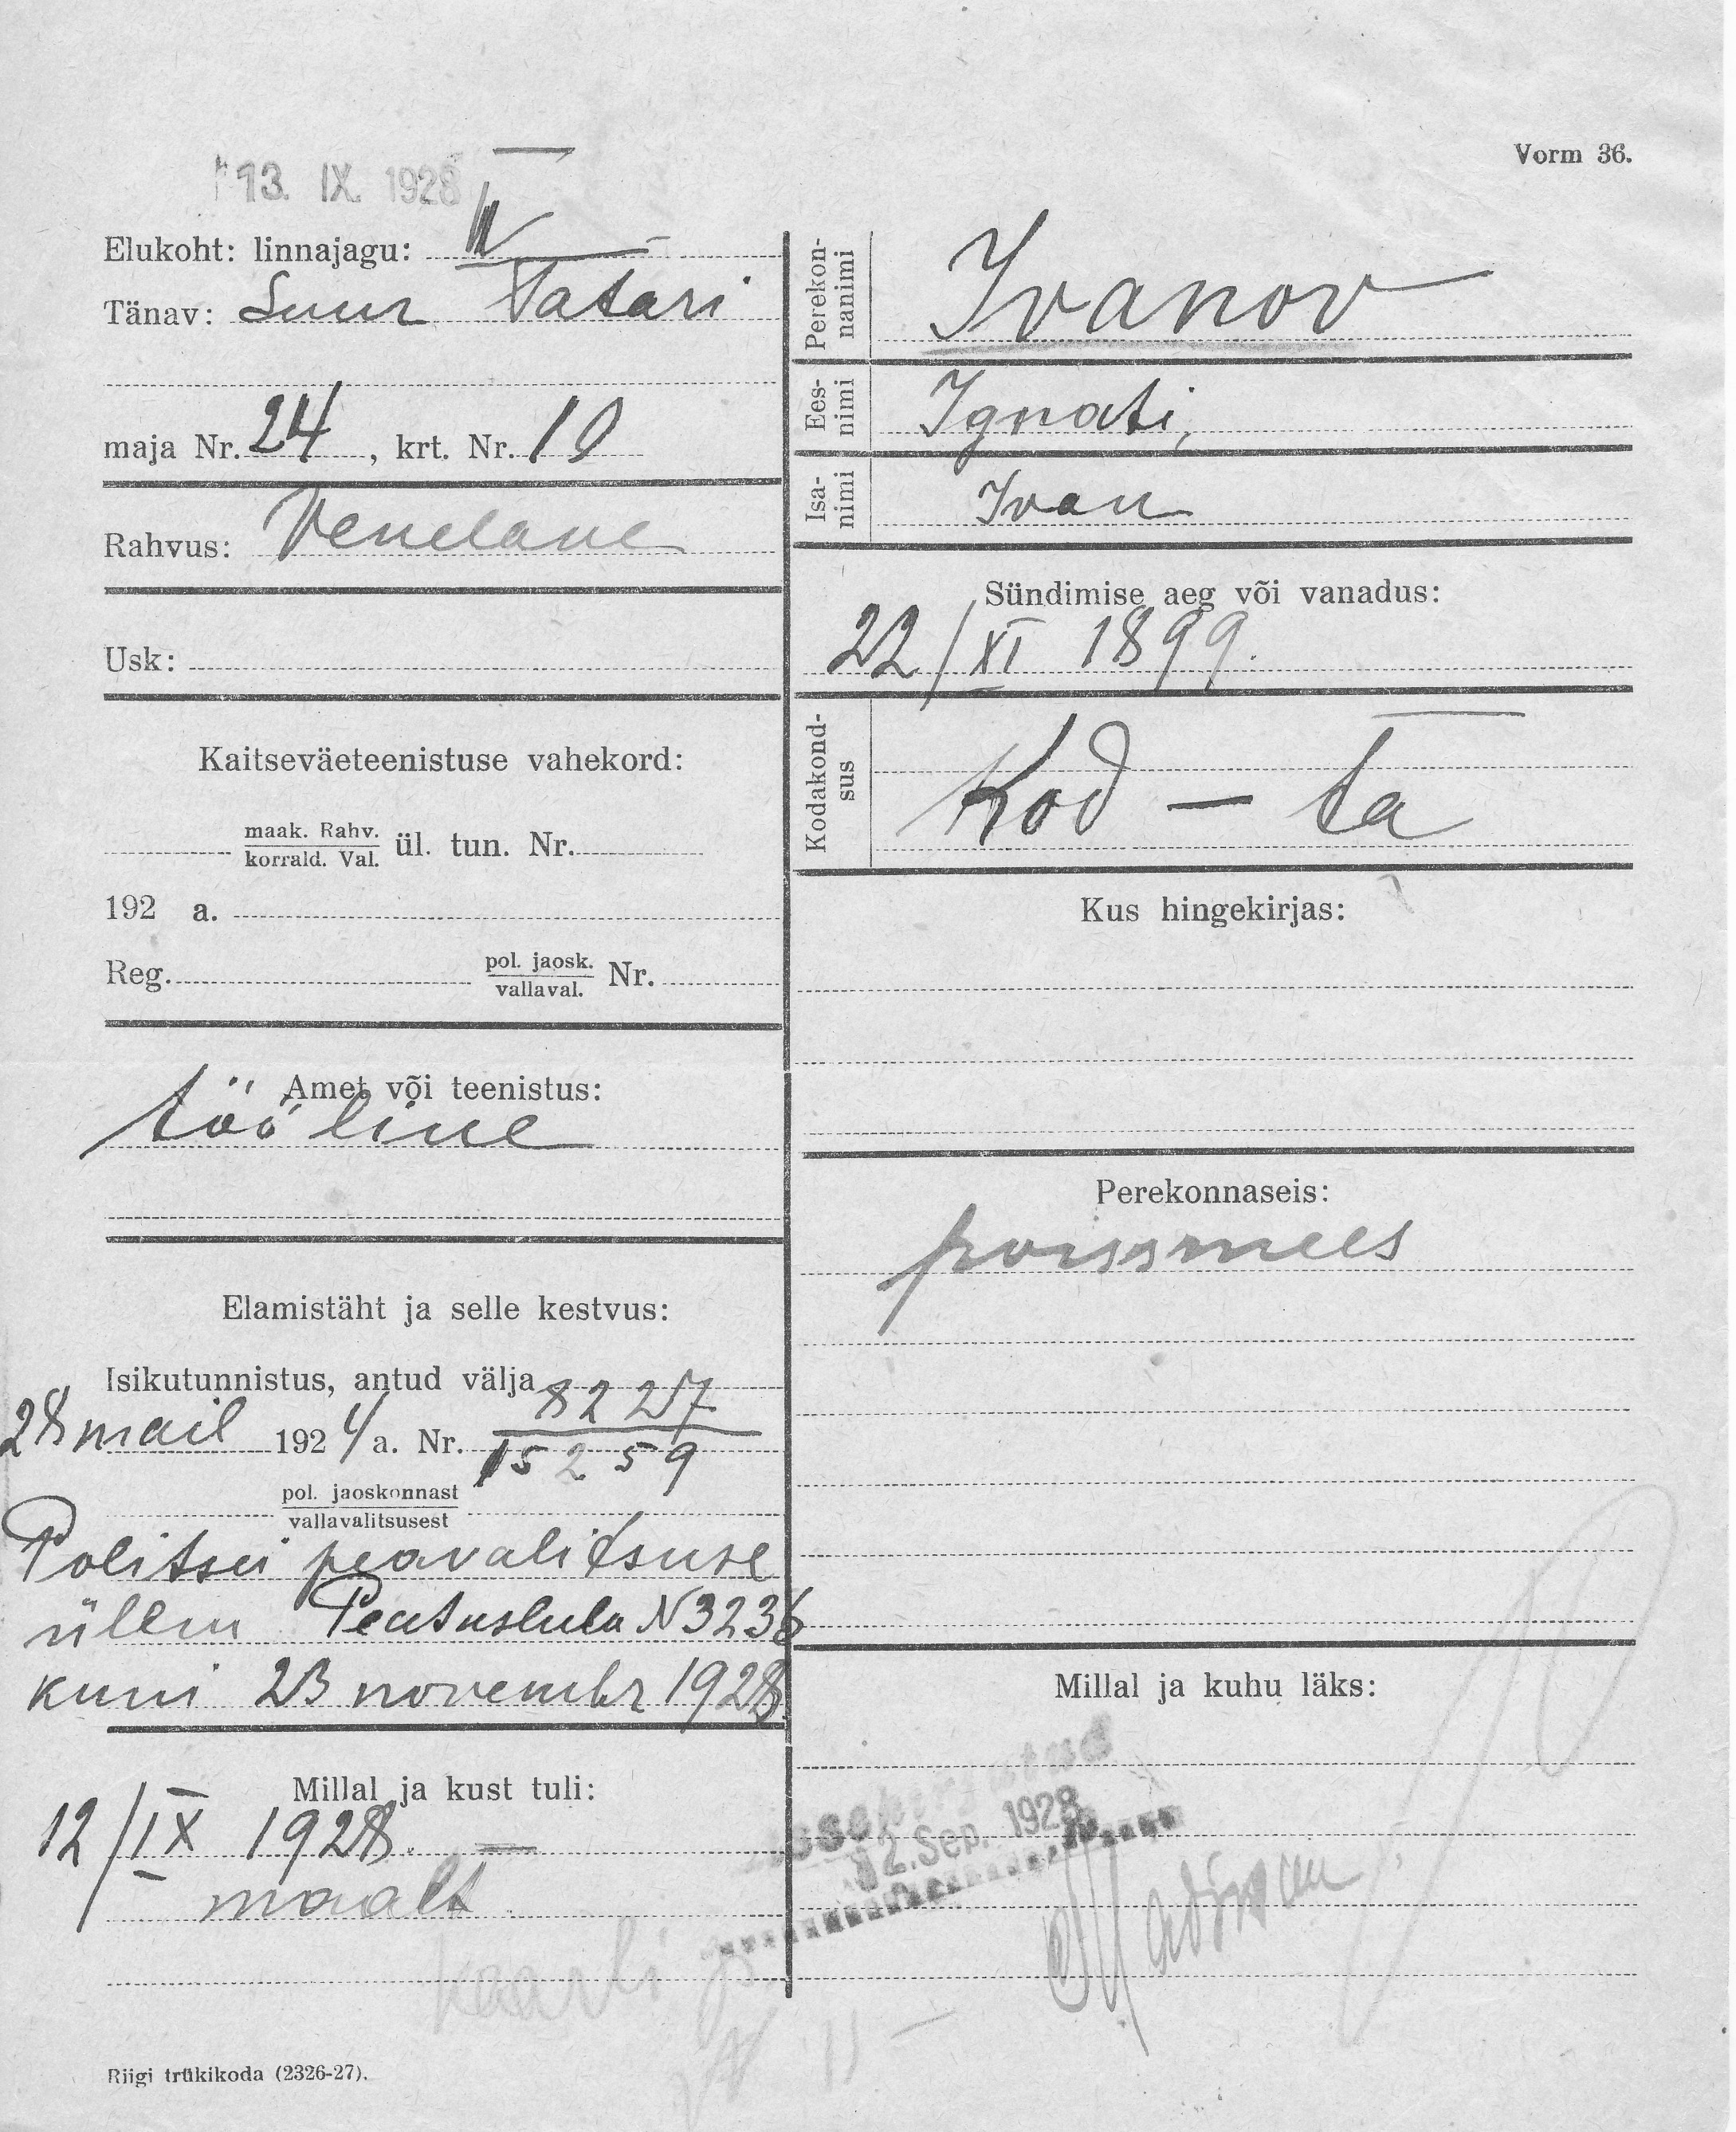 Vorm 36.
13. IX. 1928
Elukoht: linnajagu: IV
Tänav: Suur Tatari
maja Nr. 24, krt. Nr. 10
Rahvus: Venelane
Usk:
Kaitseväeteenistuse vahekord:
maak. Rahv.
korrald. Val.
ül. tun. Nr.
192 a.
Reg. pol. jaosk. Nr.
vallaval.
Amet või teenistus:
tööline
Elamistäht ja selle kestvus:
Isikutunnistus, antud välja 8227
28 mail 1924 a. Nr. 15259
pol. jaoskonnast
vallavalitsusest
Politsei peavalitsuse
üllem Peatusluba N 3236
kuni 23 novembr 1928.
Millal ja kust tuli:
12/IX 1928.
maalt
kaarli
Riigi trükikoda (2326-27).
Perekonnanimi
Ivanov
Eesnimi
Ignati,
Isanimi
Ivan
Sündimise aeg või vanadus:
22/XI 1899.
Kodakondsus
Kod – ta
Kus hingekirjas:
Perekonnaseis:
poissmees
Millal ja kuhu läks:
Sissekirjutud
12. Sep. 1928